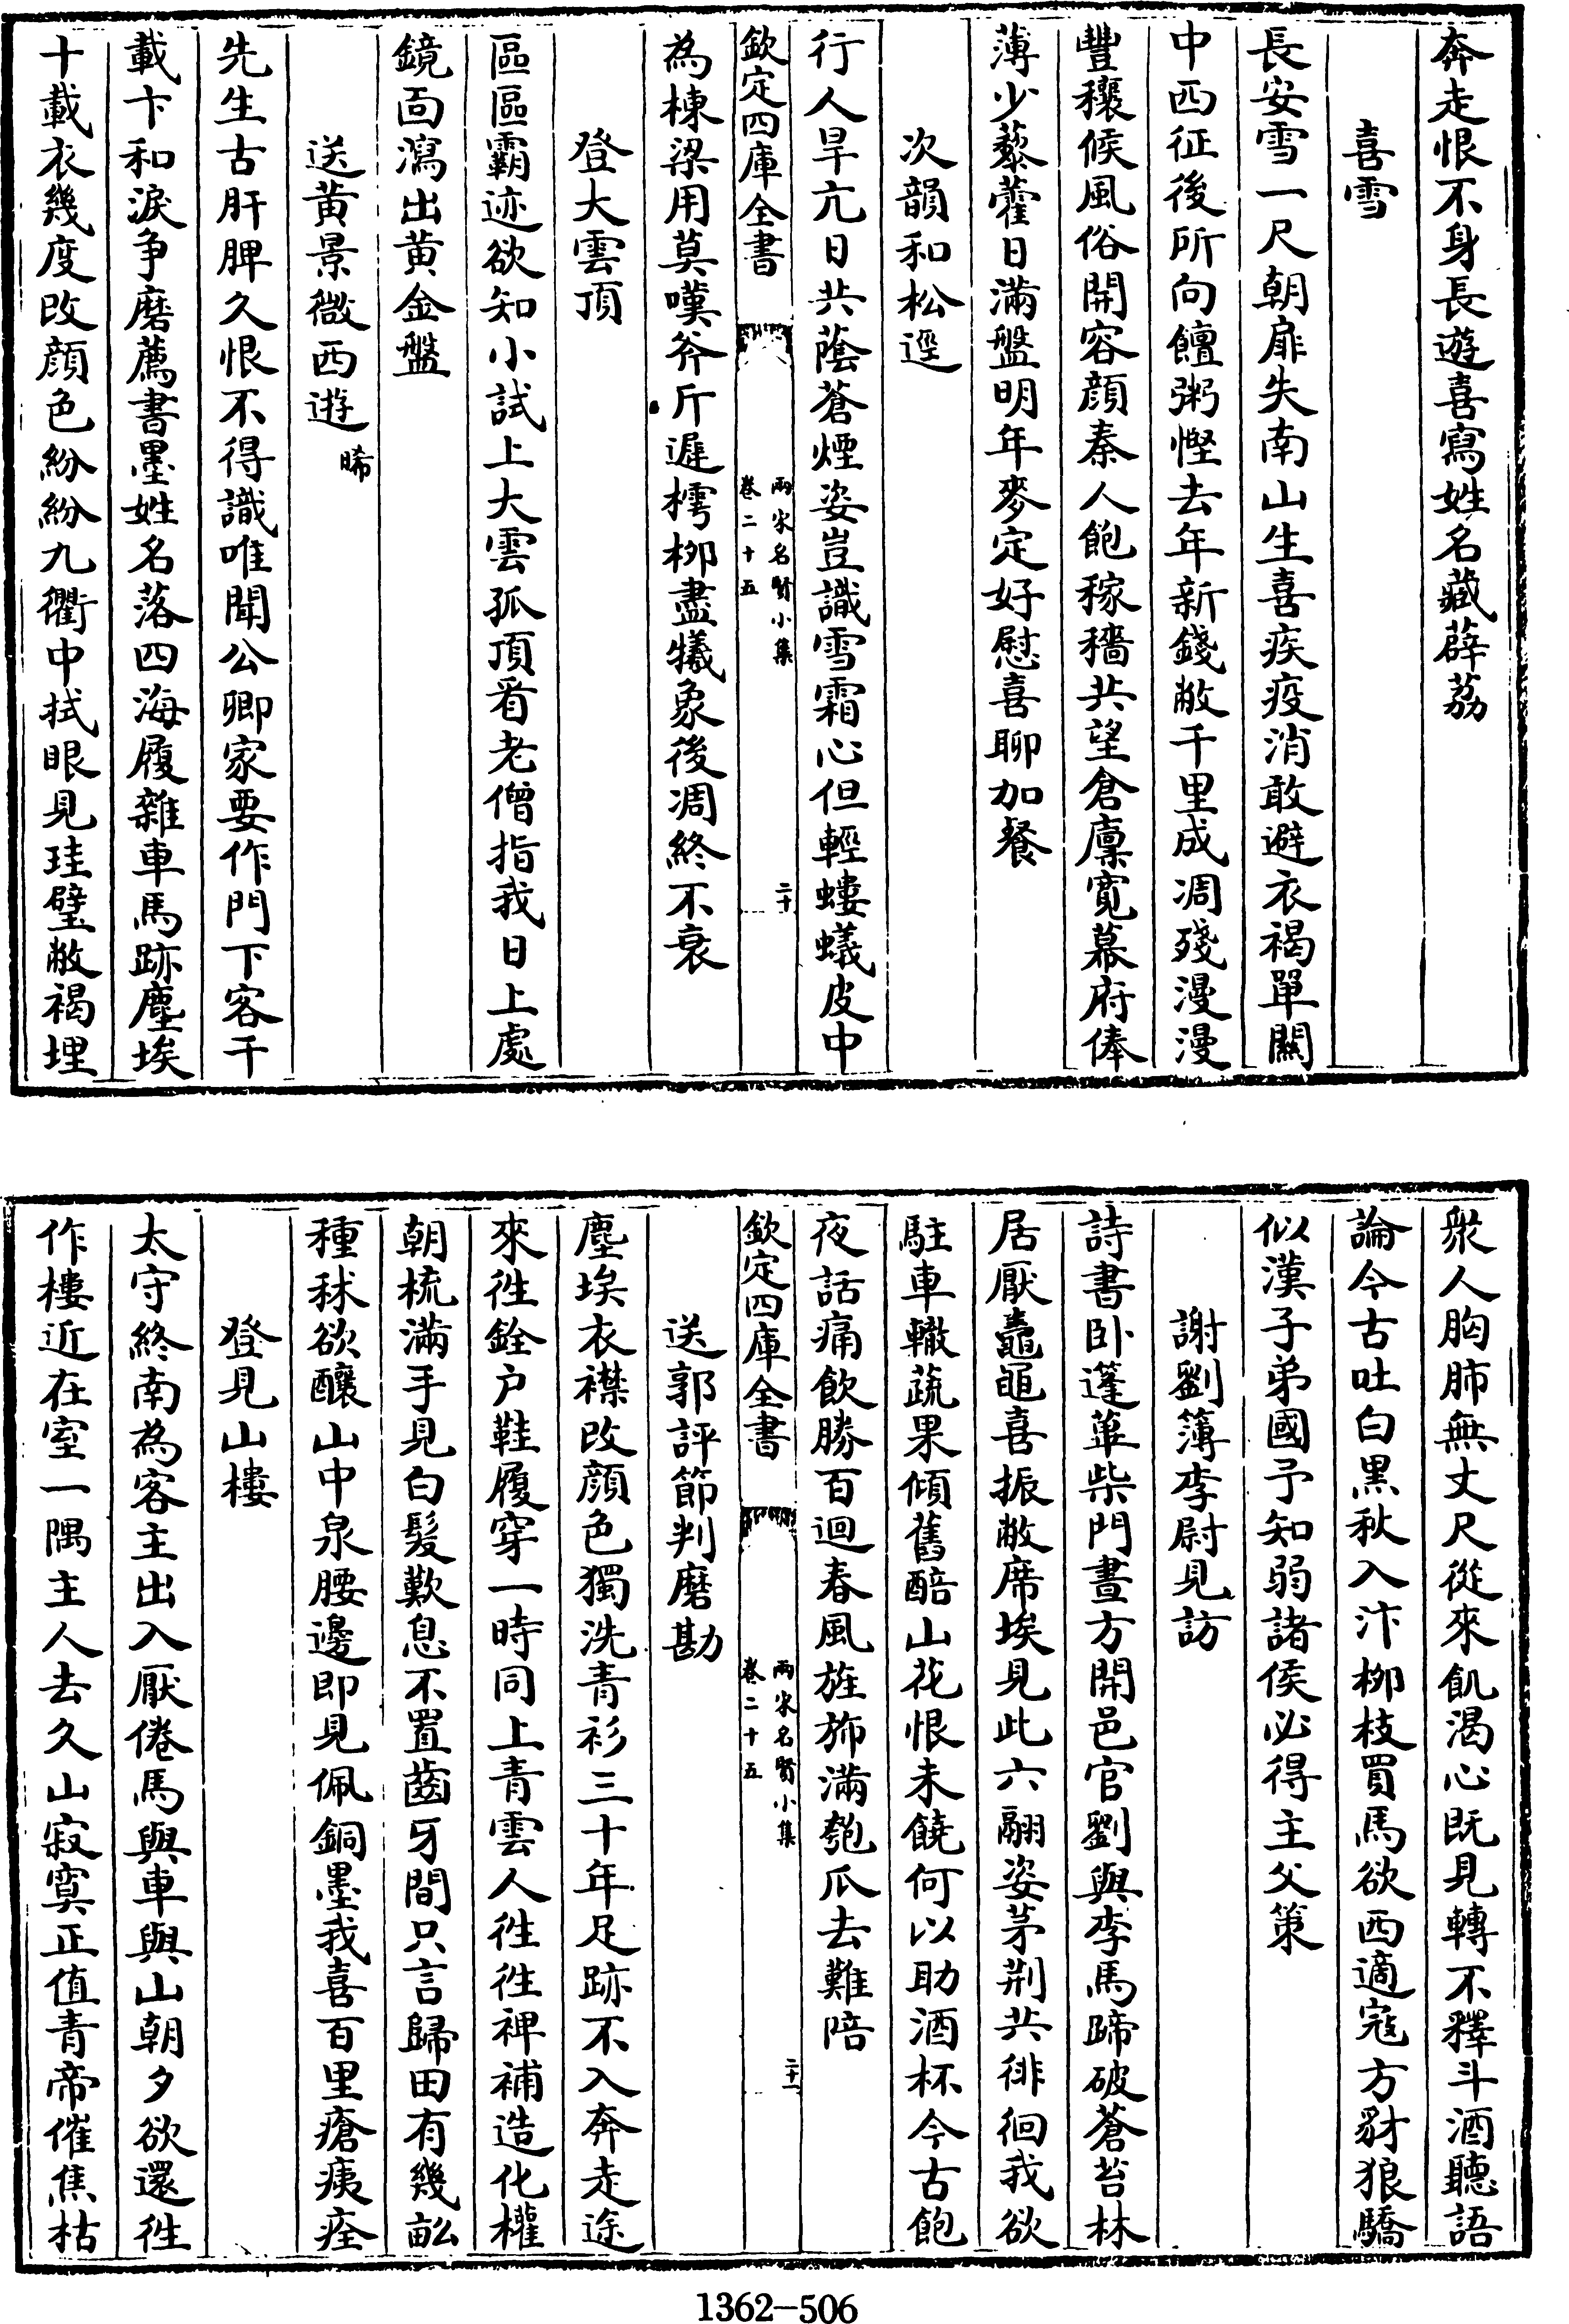 奔走恨不身長遊喜寫姓名藏薜荔
喜雪
長安雪一尺朝扉失南山生喜疾疫消敢避衣褐單關
中西征後所向饘粥慳去年新錢敝千里成凋殘漫漫
豐穰候風俗開容顔秦人飽稼穡共望倉廪寛幕府俸
薄少藜藿日滿盤明年麥定好慰喜聊加餐
次韻和松逕
行人旱亢日共蔭蒼煙姿豈識雪霜心但輕螻蟻皮中
欽定四庫全書
兩宋名賢小集
卷二十五
二十
為棟梁用莫嘆斧斤遲樗柳盡犧象後凋終不衰
登大雲頂
區區霸迹欲知小試上大雲孤頂看老僧指我日上處
鏡靣瀉出黄金盤
送黄景微西遊晞
先生古肝脾久恨不得識唯聞公卿家要作門下客千
載卞和淚争磨薦書墨姓名落四海履雜車馬跡塵埃
十載衣幾度改顔色紛紛九衢中拭眼見珪璧敝褐埋
衆人胸肺無丈尺從來飢渴心既見轉不釋斗酒聽語
論今古吐白黒秋入汴柳枝買馬欲西適宼方豺狼驕
似漢子弟國予知弱諸侯必得主父策
謝劉簿李尉見訪
詩書卧蓬蓽柴門晝方開邑官劉與李馬蹄破蒼苔林
居厭鼃黽喜振敝席埃見此六翮姿茅荆共徘徊我欲
駐車轍蔬果傾舊醅山花恨未饒何以助酒杯今古飽
夜話痛飲勝百迴春風旌斾滿匏瓜去難陪
欽定四庫全書
兩宋名賢小集
卷二十五
二十一
送郭評節判磨勘
塵埃衣襟改顔色獨洗青衫三十年足跡不入奔走途
來徃銓户鞋履穿一時同上青雲人徃徃裨補造化權
朝梳滿手見白髮歎息不置齒牙間只言歸田有幾畝
種秫欲釀山中泉腰邊即見佩銅墨我喜百里瘡痍痊
登見山樓
太守終南為客主出入厭倦馬與車與山朝夕欲還徃
作樓近在室一隅主人去久山寂寞正值青帝催焦枯
1362—506